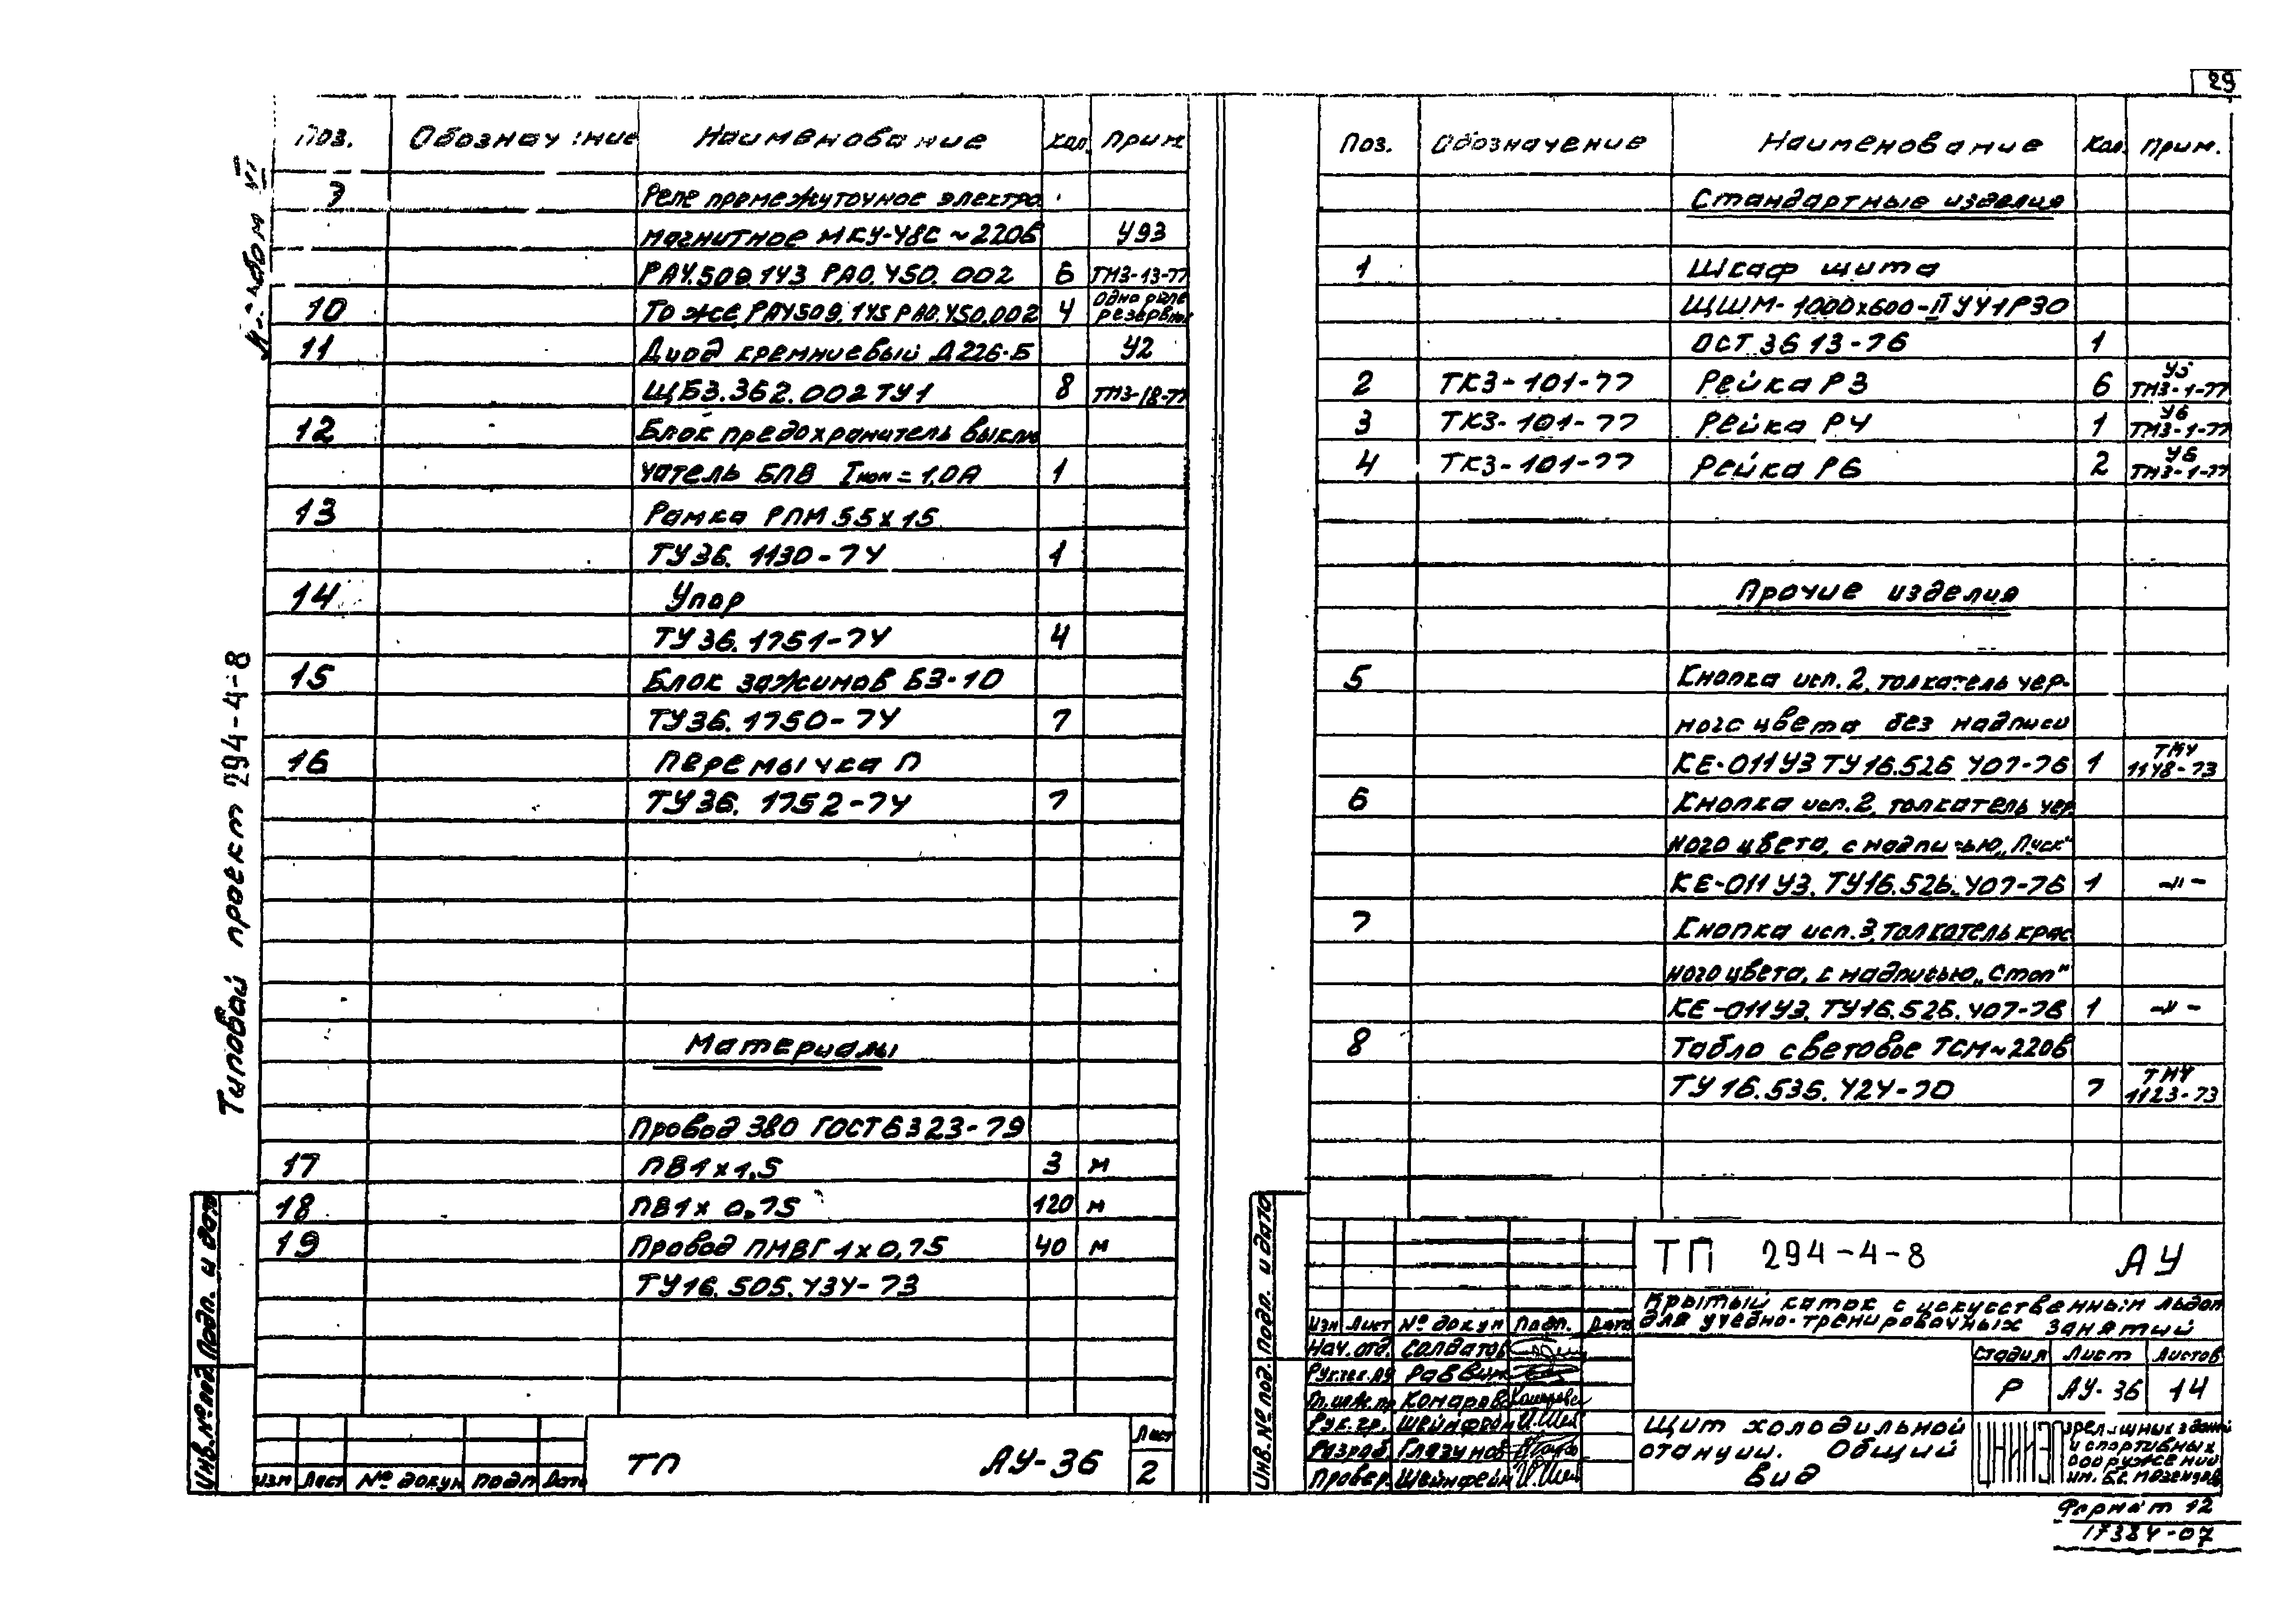 29
Типовой проект 294-4-8
Поз. Наименование Кол. Прим
Реле промежуточное электро
магнитное МКУ-48С ~220в У93
РА4.509.143 РА0.450.002 6 ТМ3-13-77
10 То же РА4509.145 РА0.450.002 4 Одно реле
11 Диод кремниевый Д226-Б У2
ЩБ3.362.002ТУ1 8 ТМ3-18-77
12 Блок предохранитель выклю
чатель БПВ Iном = 1.0А 1
13 Рамка РПМ 55х15
ТУ36. 1130-74 1
14 Упор
ТУ36.1751-74 4
15 Блок зажимов БЗ-10
ТУ36. 1750-74 7
16 Перемычка П
ТУ36. 1752-74 7
Материалы
Провод 380 ГОСТ6323-79
17 ПВ1х1,5 3 м
18 ПВ1х 0,75 120 м
19 Провод ПМВГ 1х0,75 40 м
ТУ16.505.434-73
Подп. и дата
Инв.№ под
Изм Лист № докум Подп Дата
ТП АУ-36
Лист
2
Поз. Обозначение Наименование Кол. Прим.
Стандартные изделия
1 Шкаф щита
ЩШМ-1000х600-II УУ1Р30
ОСТ 36 13-76 1
2 ТК3-101-77 Рейка Р3 6 У5 ТМ3-1-77
3 ТК3-101-77 Рейка Р4 1 У6 ТМ3-1-77
4 ТК3-101-77 Рейка Р6 2 У6 ТМ3-1-77
Прочие изделия
5 Кнопка исп.2, толкатель чер-
ного цвета без надписи
КЕ-011У3 ТУ16.526 407-76 1 ТМ4 1148-73
6 Кнопка исп.2, толкатель чер
ного цвета, с надписью „Пуск"
КЕ-011У3. ТУ16.526.407-76 1 -"-
7 Кнопка исп.3, толкатель крас
ного цвета, с надписью „Стоп"
КЕ-011У3. ТУ16.526.407-76 1 -"-
8 Табло световое ТСМ~220в
ТУ16.535.424-70 7 ТМ4 1123-73
Подп. и дата
Инв.№ под.
Изм Лист № докум Подп. Дата
Нач.отд. Солдатов
Рук.гр. Шейнфейн
Разраб. Глазунов
Провер. Шейнфейн
ТП 294-4-8 АУ
Крытый каток с искусственным льдом
для учебно-тренировочных занятий
Стадия Лист Листов
Р АУ-36 14
Щит холодильной
станции. Общий
вид
ЦНИИЭП зрелищных зданий
и спортивных
сооружений
им. Б.С. Мезенцева
Формат 12
17384-07